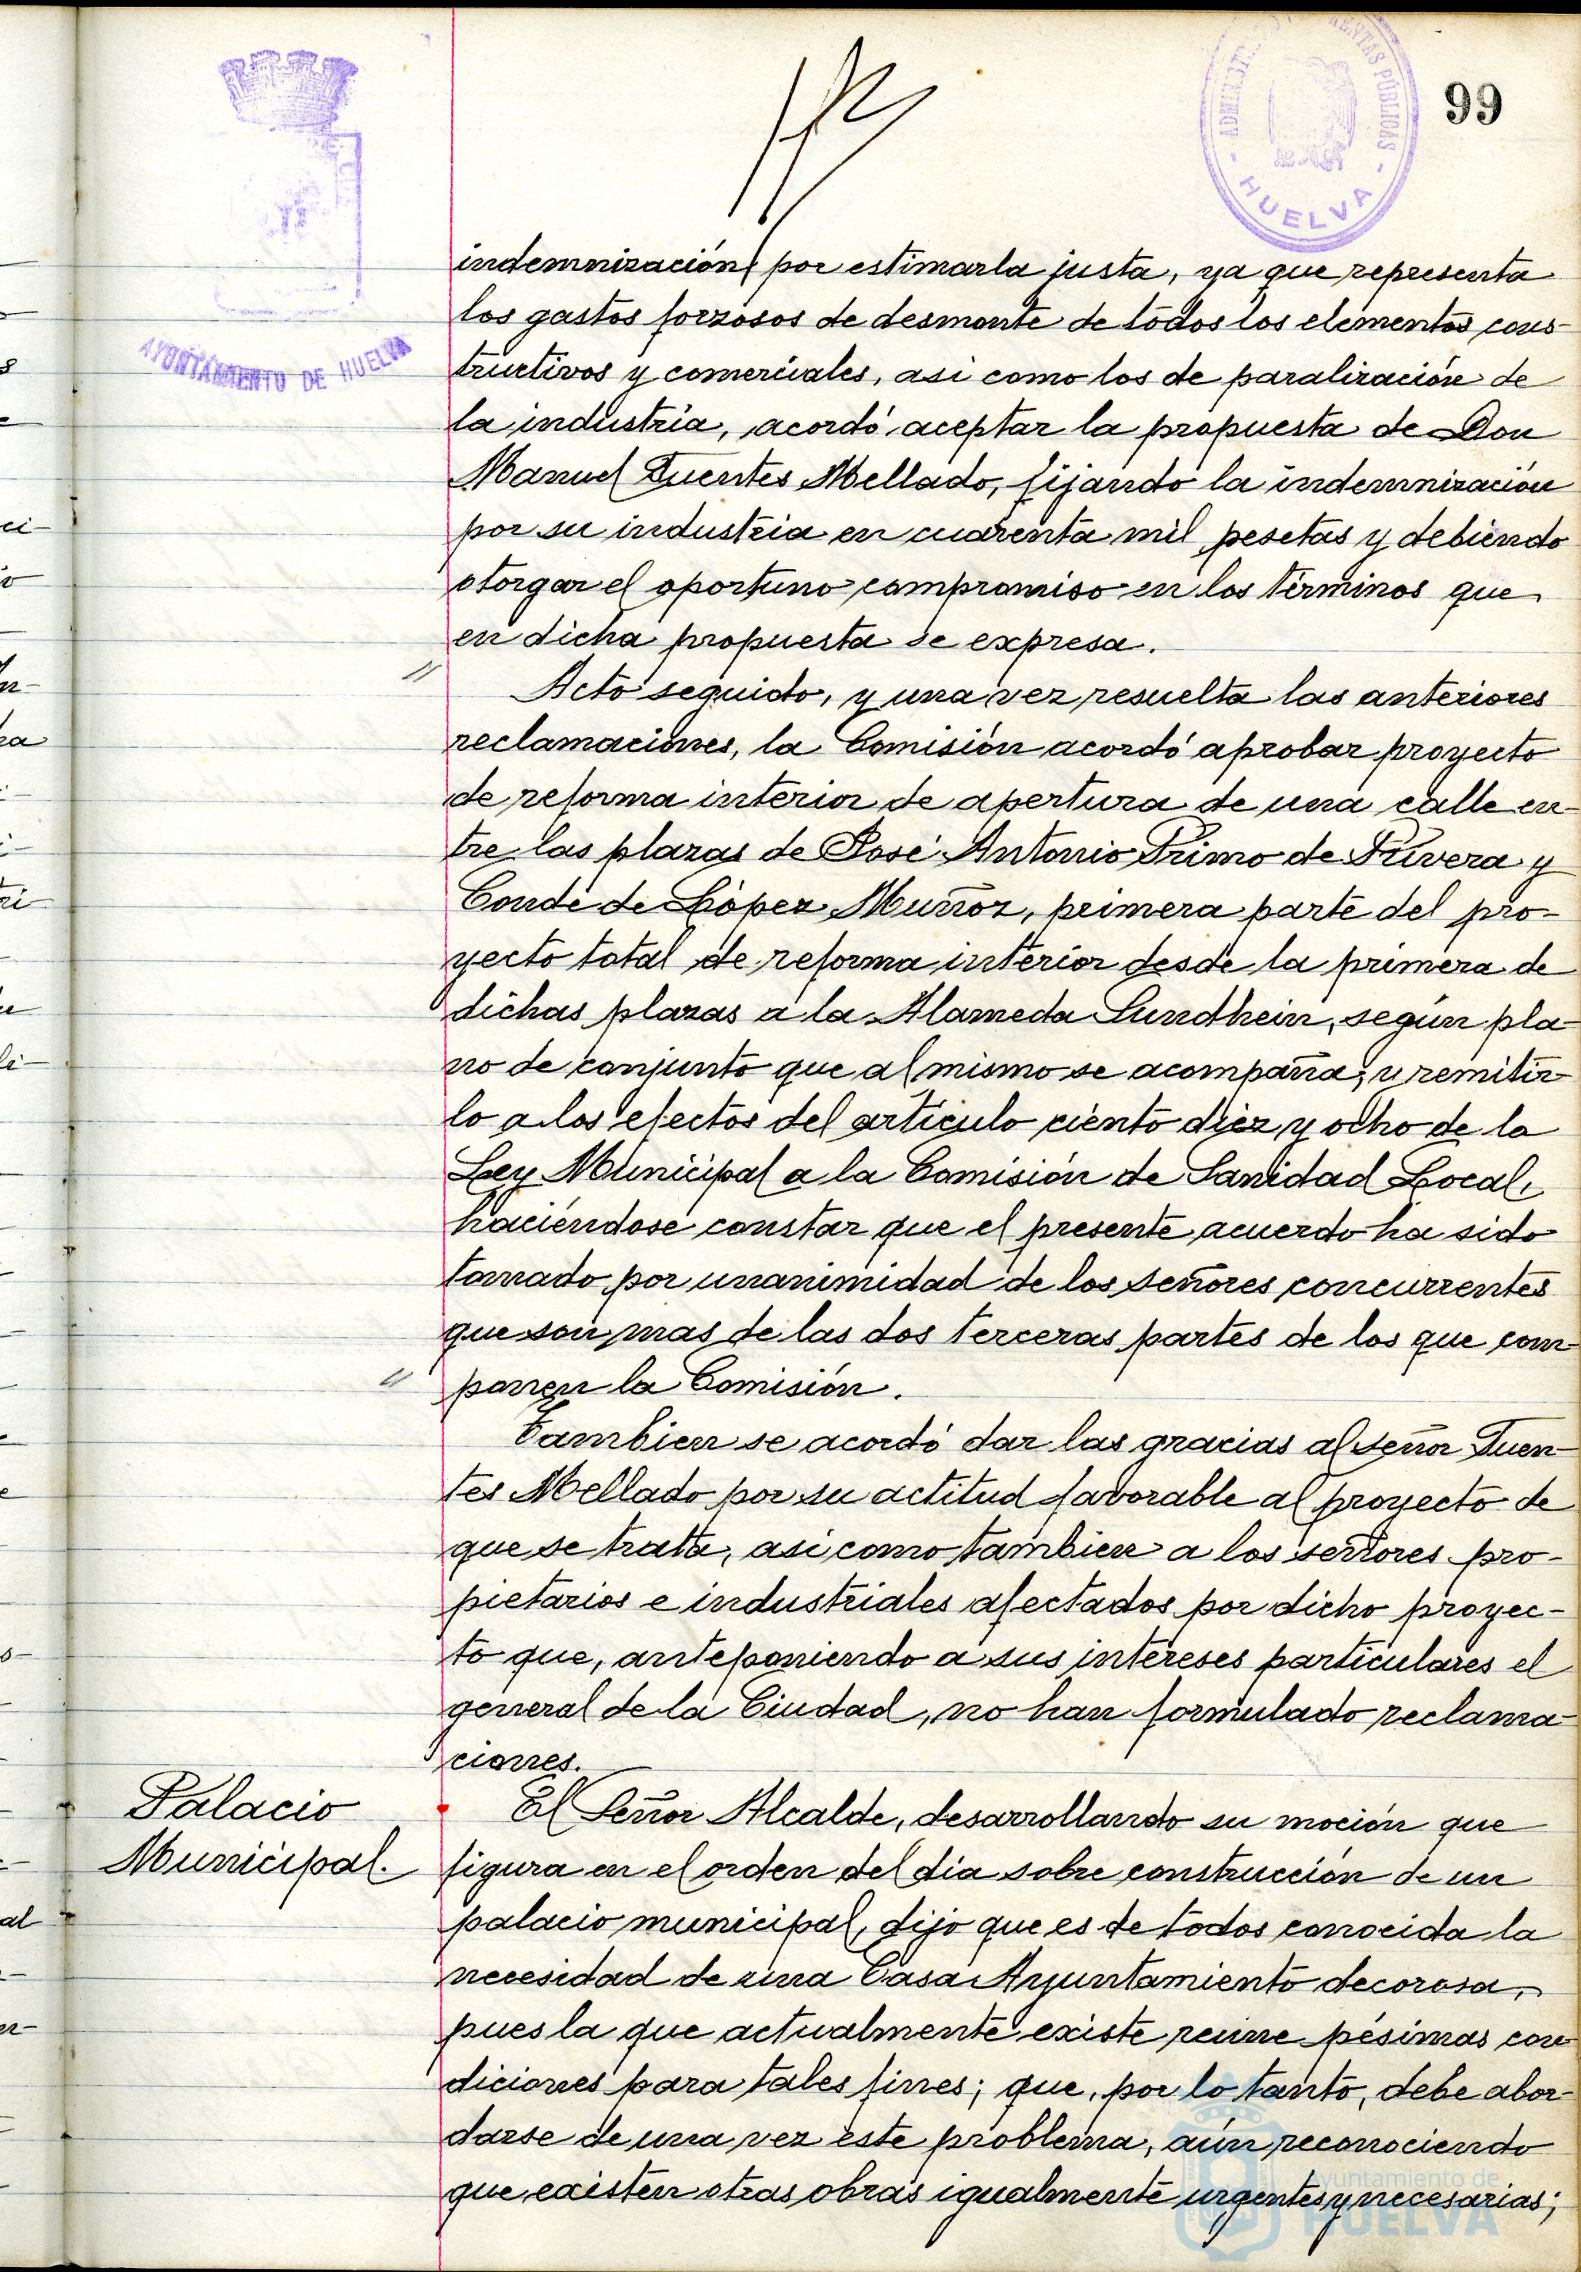 99
ADMINISTRACION RENTAS PÚBLICAS
- HUELVA -
AYUNTAMIENTO DE HUELVA
indemnización, por estimarla justa, ya que representa
los gastos forzosos de desmonte de todos los elementos cons-
tructivos y comerciales, asi como los de paralización de
la industria, acordó aceptar la propuesta de Don
Manuel Fuentes Mellado, fijando la indemnización
por su industria en cuarenta mil pesetas y debiendo
otorgar el oportuno compromiso en los términos que
en dicha propuesta se expresa.
Acto seguido, y una vez resuelta las anteriores
reclamaciones, la Comisión acordó aprobar proyecto
de reforma interior de apertura de una calle en-
tre las plazas de José Antonio Primo de Rivera y
Conde de López Muñoz, primera parte del pro-
yecto total de reforma interior desde la primera de
dichas plazas a la Alameda Sundhein, según pla-
no de conjunto que al mismo se acompaña, y remitir-
lo a los efectos del artículo ciento diez y ocho de la
Ley Municipal a la Comisión de Sanidad Local,
haciéndose constar que el presente acuerdo ha sido
tomado por unanimidad de los señores concurrentes
que son mas de las dos terceras partes de los que com-
ponen la Comisión.
Tambien se acordó dar las gracias al señor Fuen-
tes Mellado por su actitud favorable al proyecto de
que se trata, asi como tambien a los señores pro-
pietarios e industriales afectados por dicho proyec-
to que, anteponiendo a sus intereses particulares el
general de la Ciudad, no han formulado reclama-
ciones.
Palacio
Municipal.
El Señor Alcalde, desarrollando su moción que
figura en el orden del dia sobre construcción de un
palacio municipal, dijo que es de todos conocida la
necesidad de una Casa Ayuntamiento decorosa,
pues la que actualmente existe reune pésimas con-
diciones para tales fines; que, por lo tanto, debe abor-
darse de una vez este problema, aún reconociendo
que existen otras obras igualmente urgentes y necesarias;
Ayuntamiento de
HUELVA